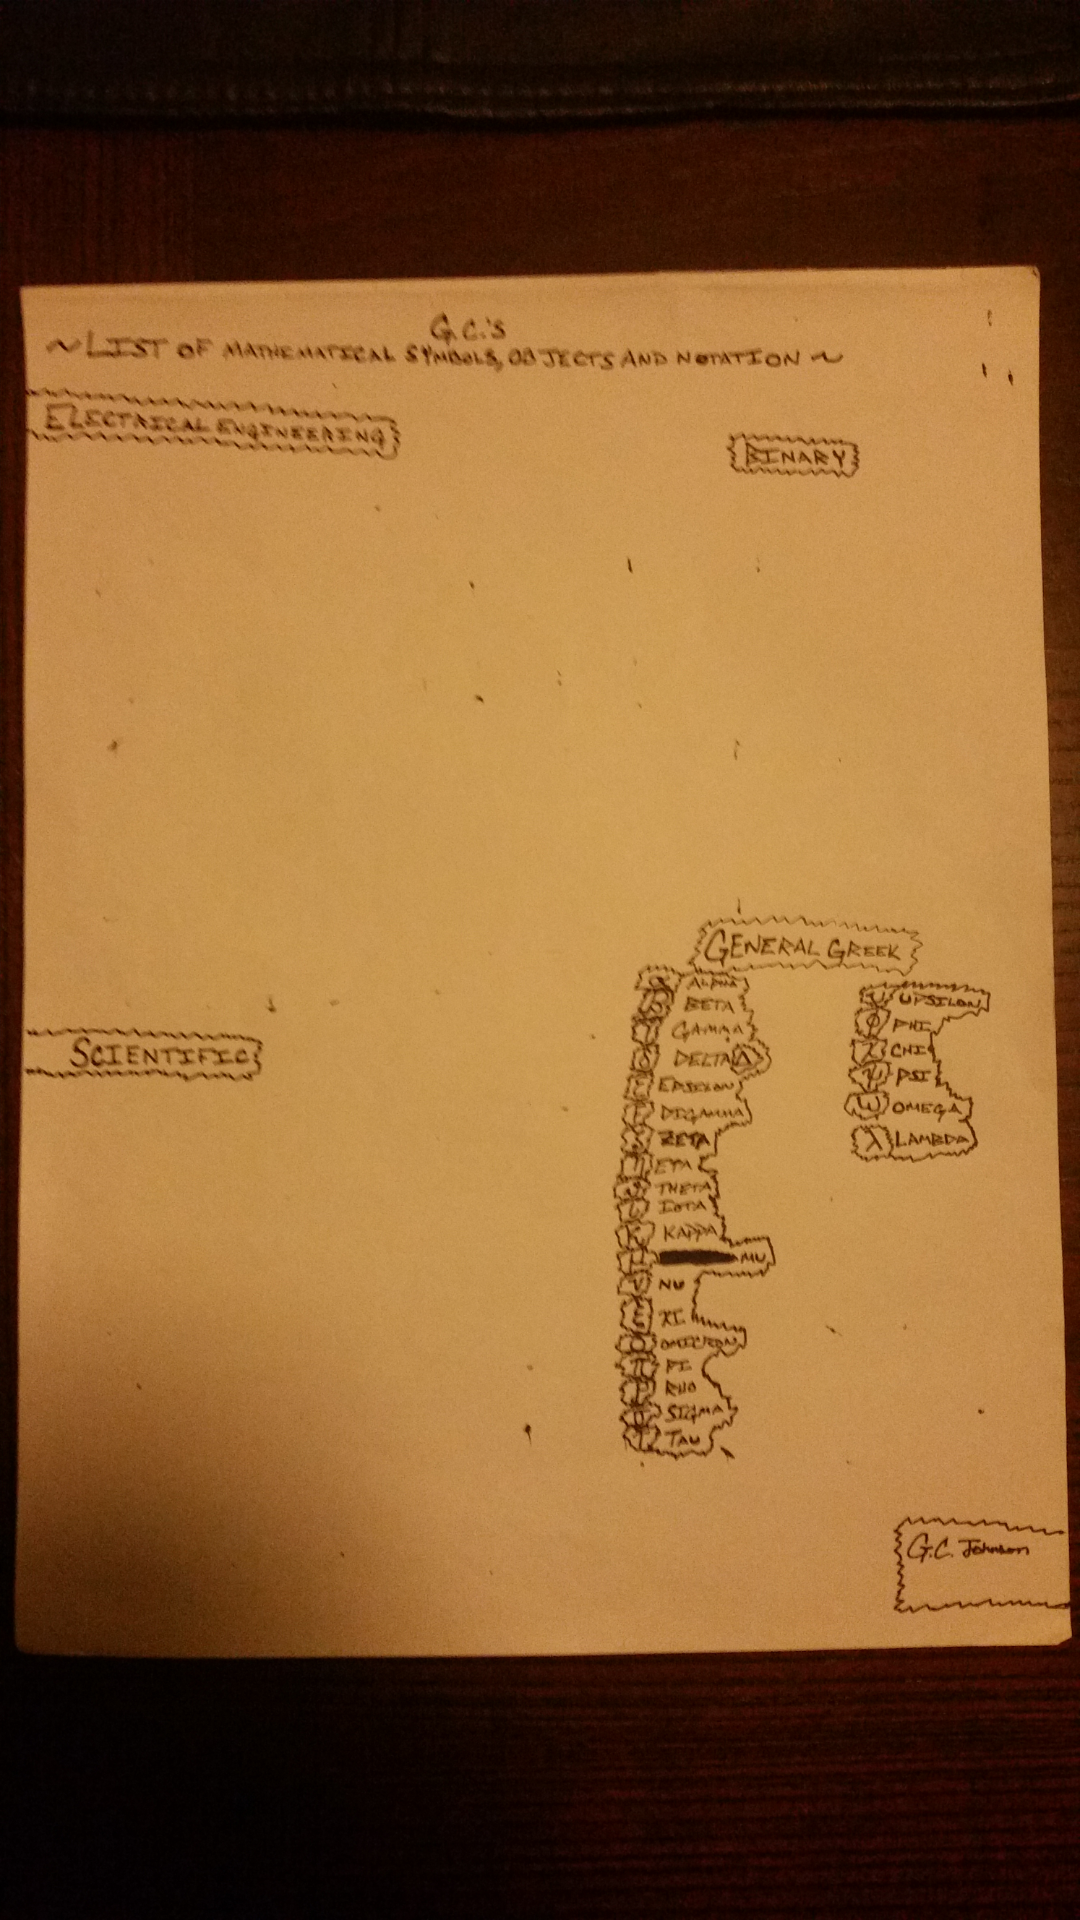 G.C.'S
~LIST OF MATHEMATICAL SYMBOLS, OBJECTS AND NOTATION~
ELECTRICAL ENGINEERING
BINARY
GENERAL GREEK
α ALPHA
β BETA
γ GAMMA
δ DELTA Δ
ε EPSILON
DIGAMMA
ζ ZETA
η ETA
θ THETA
ι IOTA
κ KAPPA
μ MU
ν NU
ξ XI
ο OMICRON
π PI
ρ RHO
σ SIGMA
τ TAU
υ UPSILON
φ PHI
χ CHI
ψ PSI
ω OMEGA
λ LAMBDA
SCIENTIFIC
G.C. Johnson